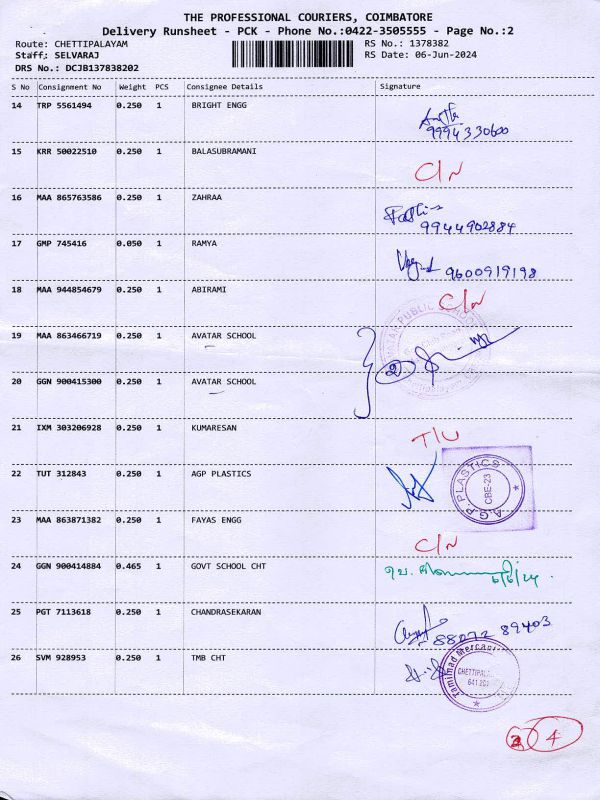 THE PROFESSIONAL COURIERS, COIMBATORE
Delivery Runsheet - PCK - Phone No.:0422-3505555 - Page No.:2
Route: CHETTIPALAYAM RS No.: 1378382
Staff: SELVARAJ RS Date: 06-Jun-2024
DRS No.: DCJB137838202
S No Consignment No Weight PCS Consignee Details Signature
14 TRP 5561494 0.250 1 BRIGHT ENGG
9994330600
15 KRR 50022510 0.250 1 BALASUBRAMANI C/N
16 MAA 865763586 0.250 1 ZAHRAA
9944902884
17 GMP 745416 0.050 1 RAMYA 9600919198
18 MAA 944854679 0.250 1 ABIRAMI C/N
19 MAA 863466719 0.250 1 AVATAR SCHOOL
PUBLIC SCHOOL
20 GGN 900415300 0.250 1 AVATAR SCHOOL
2
21 IXM 303206928 0.250 1 KUMARESAN T/U
22 TUT 312843 0.250 1 AGP PLASTICS
A.G.P. PLASTICS
CBE-23
23 MAA 863871382 0.250 1 FAYAS ENGG C/N
24 GGN 900414884 0.465 1 GOVT SCHOOL CHT 6/6/24
25 PGT 7113618 0.250 1 CHANDRASEKARAN 88072 89403
26 SVM 928953 0.250 1 TMB CHT
Tamilnad Mercan
CHETTIPALA
641 201
4